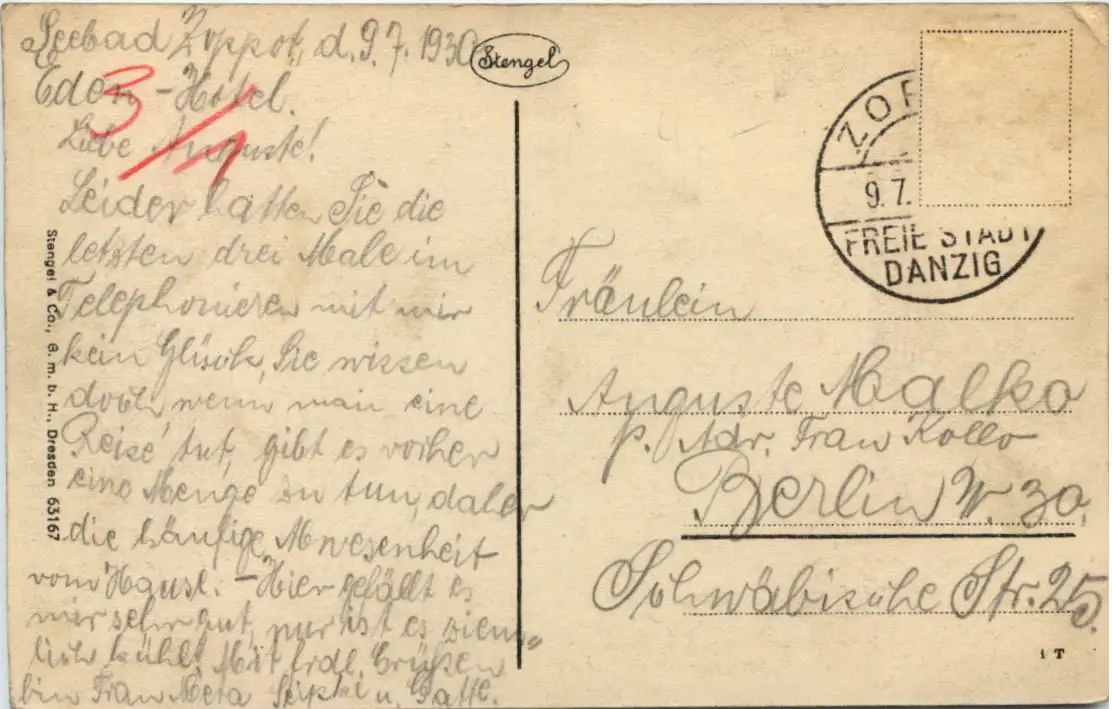 Seebad Zoppot, d. 9.7.1930
Eden-Hotel.
3/1
Liebe Auguste!
Leider hatten Sie die
letzten drei Male im
Telephonieren mit mir
kein Glück, Sie wissen
doch, wenn man eine
Reise tut, gibt es vorher
eine Menge zu tun, daher
die häufige Abwesenheit
vom Hause. - Hier gefällt es
mir sehr gut, nur ist es ziem„
lich kühl! Mit frdl. Grüßen
bin Frau Meta u. Gatte.
Stengel & Co., G. m. b. H., Dresden 63167
Stengel
9.7.
FREIE STADT
DANZIG
Fräulein
Auguste Malko
p. Adr. Frau Kollo
Berlin W. 30.
Schwäbische Str. 25.
1 T